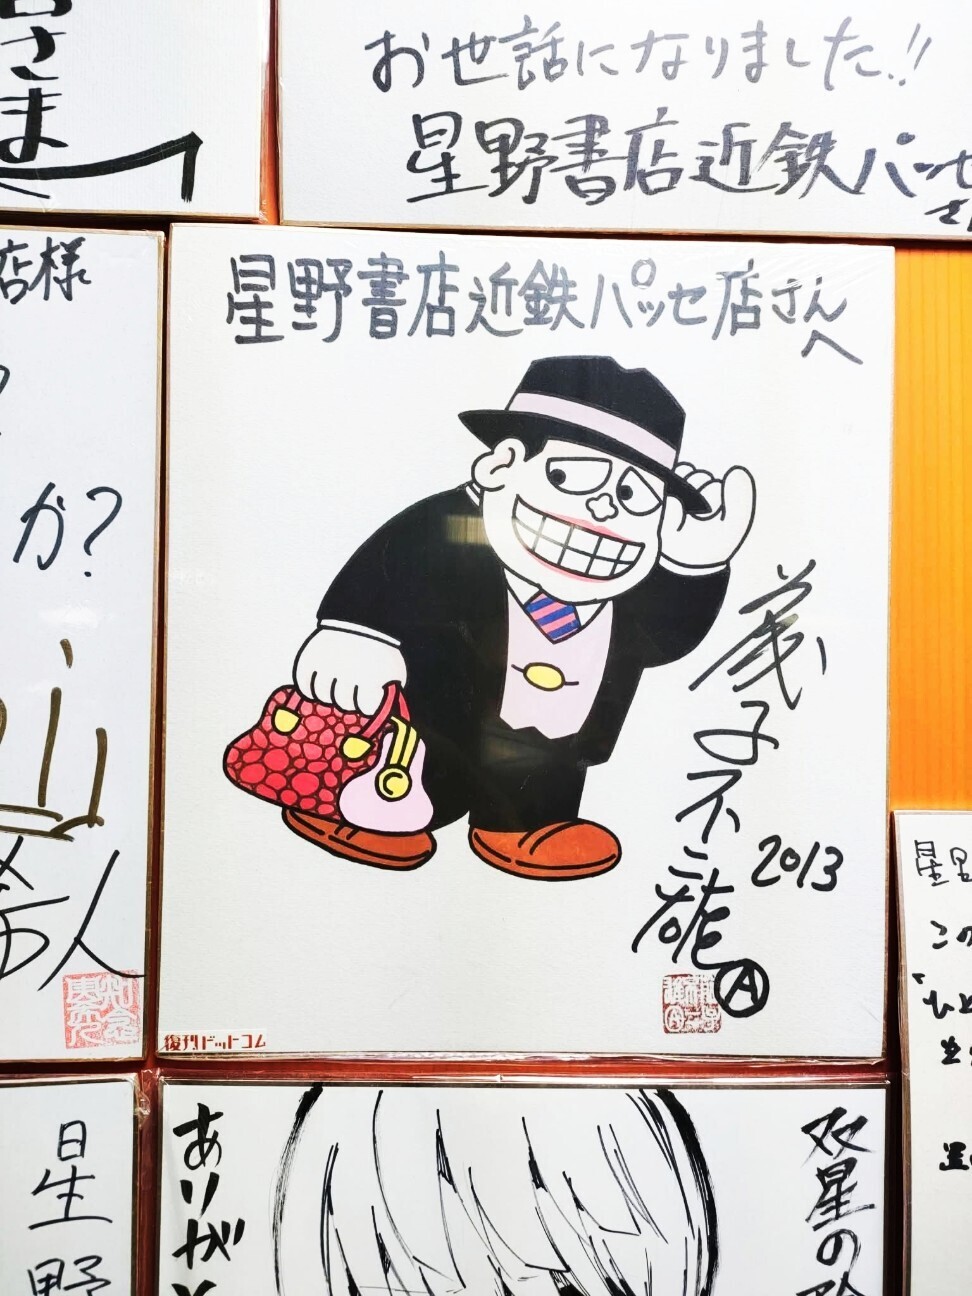 さま
お世話になりました!!
星野書店近鉄パッセ
店様
か?
星野書店近鉄パッセ店さん
へ
藤子不二雄
Ⓐ
2013
復刊ドットコム
人
星野
ありがと
双星の
この